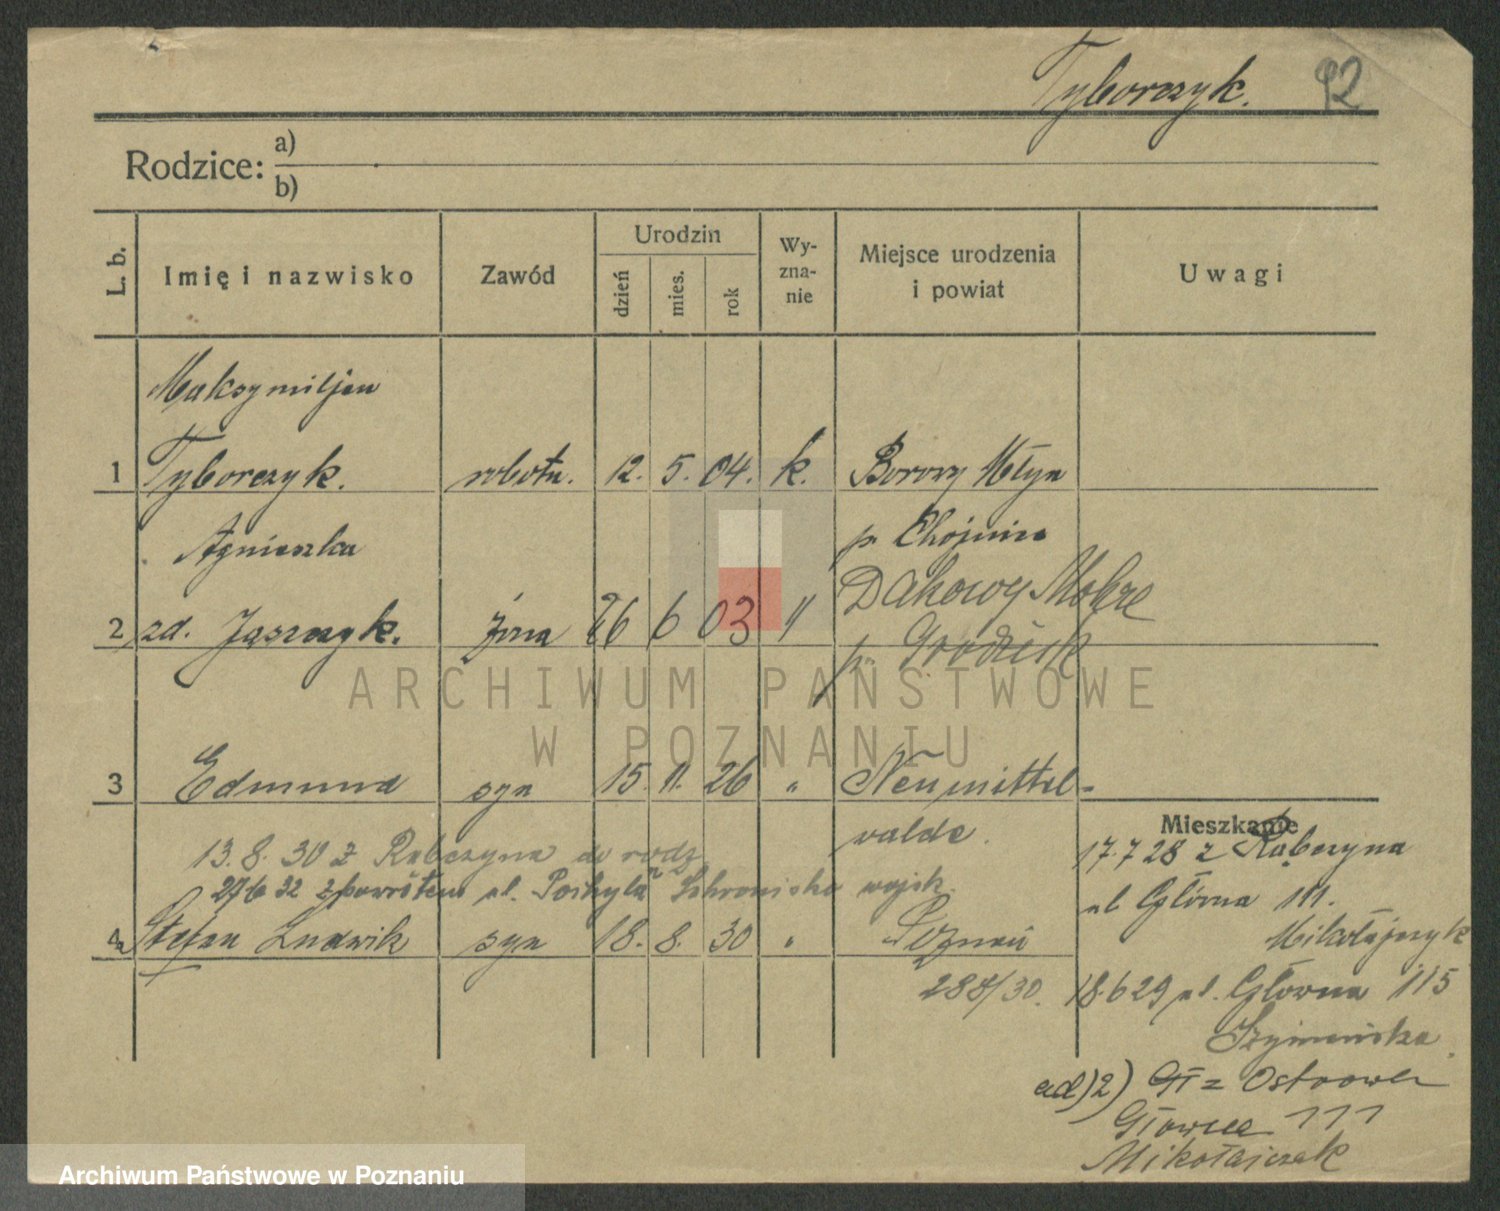 Tyborczyk. 92
Rodzice: a)
b)
L. b. Imię i nazwisko Zawód Urodzin dzień mies. rok Wy-zna-nie Miejsce urodzenia i powiat Uwagi
Maksymiljan
1 Tyborczyk. robotn. 12. 5. 04. k. Borowy Młyn
Agnieszka p. Chojnice
Dakowy Mokre
2 zd. Jąszczyk. żona 26 6 03 "
p. Grodzisk
ARCHIWUM PAŃSTWOWE
W POZNANIU
3 Edmund syn 15. 11. 26 " Neumittel-
walde.
Mieszkanie
13. 8. 30 z Rabczyna do rodz.
17.7 28 z Rąbczyna
27/6 32 z powrotem ul. Schronisko wojsk.
ul Główna 111.
4 Stefan Ludwik syn 18. 8. 30 " Poznań
Mikołajczyk
288/30. 18.6 29 ul. Główna 115
Szymańska
ad) 2) z Ostrowa
Główna 111
Mikołajczak
Archiwum Państwowe w Poznaniu